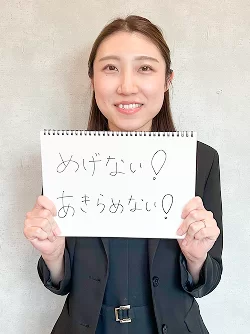 めげない!
あきらめない!